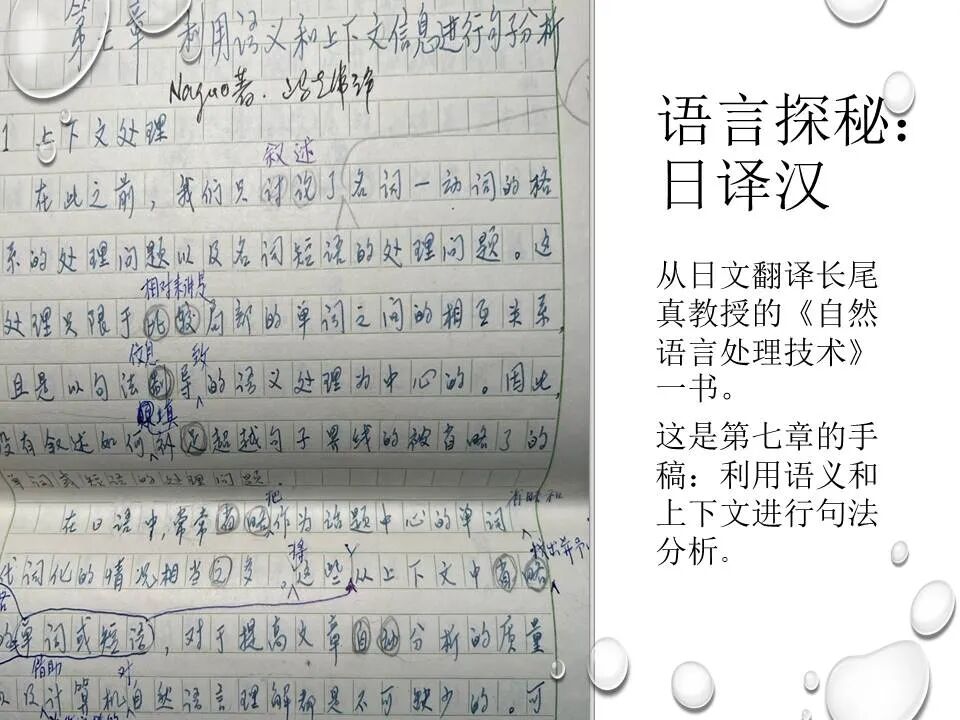 第七章 利用语义和上下文信息进行句子分析
Nagao著.
1 上下文处理
叙述
在此之前，我们只讨说了名词一动词的格
系的处理问题以及名词短语的处理问题。这
相对来讲是
处理只限于比较局部的单词之间的相互关系
信息 致
且是以句法制导的语义处理为中心的。因此
填
没有叙述如何补足超越句子界线的被省略了的
单词或短语的处理问题.
把 有时和
在日语中,常常省略作为话题中心的单词
得 找出并予
代词化的情况相当之多。这些从上下文中省略
的单词或短语，对于提高文章自动分析的质量
借助 对
以及计算机自然语言理解都是不可缺少的。可
语言探秘：
日译汉
从日文翻译长尾
真教授的《自然
语言处理技术》
一书。
这是第七章的手
稿：利用语义和
上下文进行句法
分析。